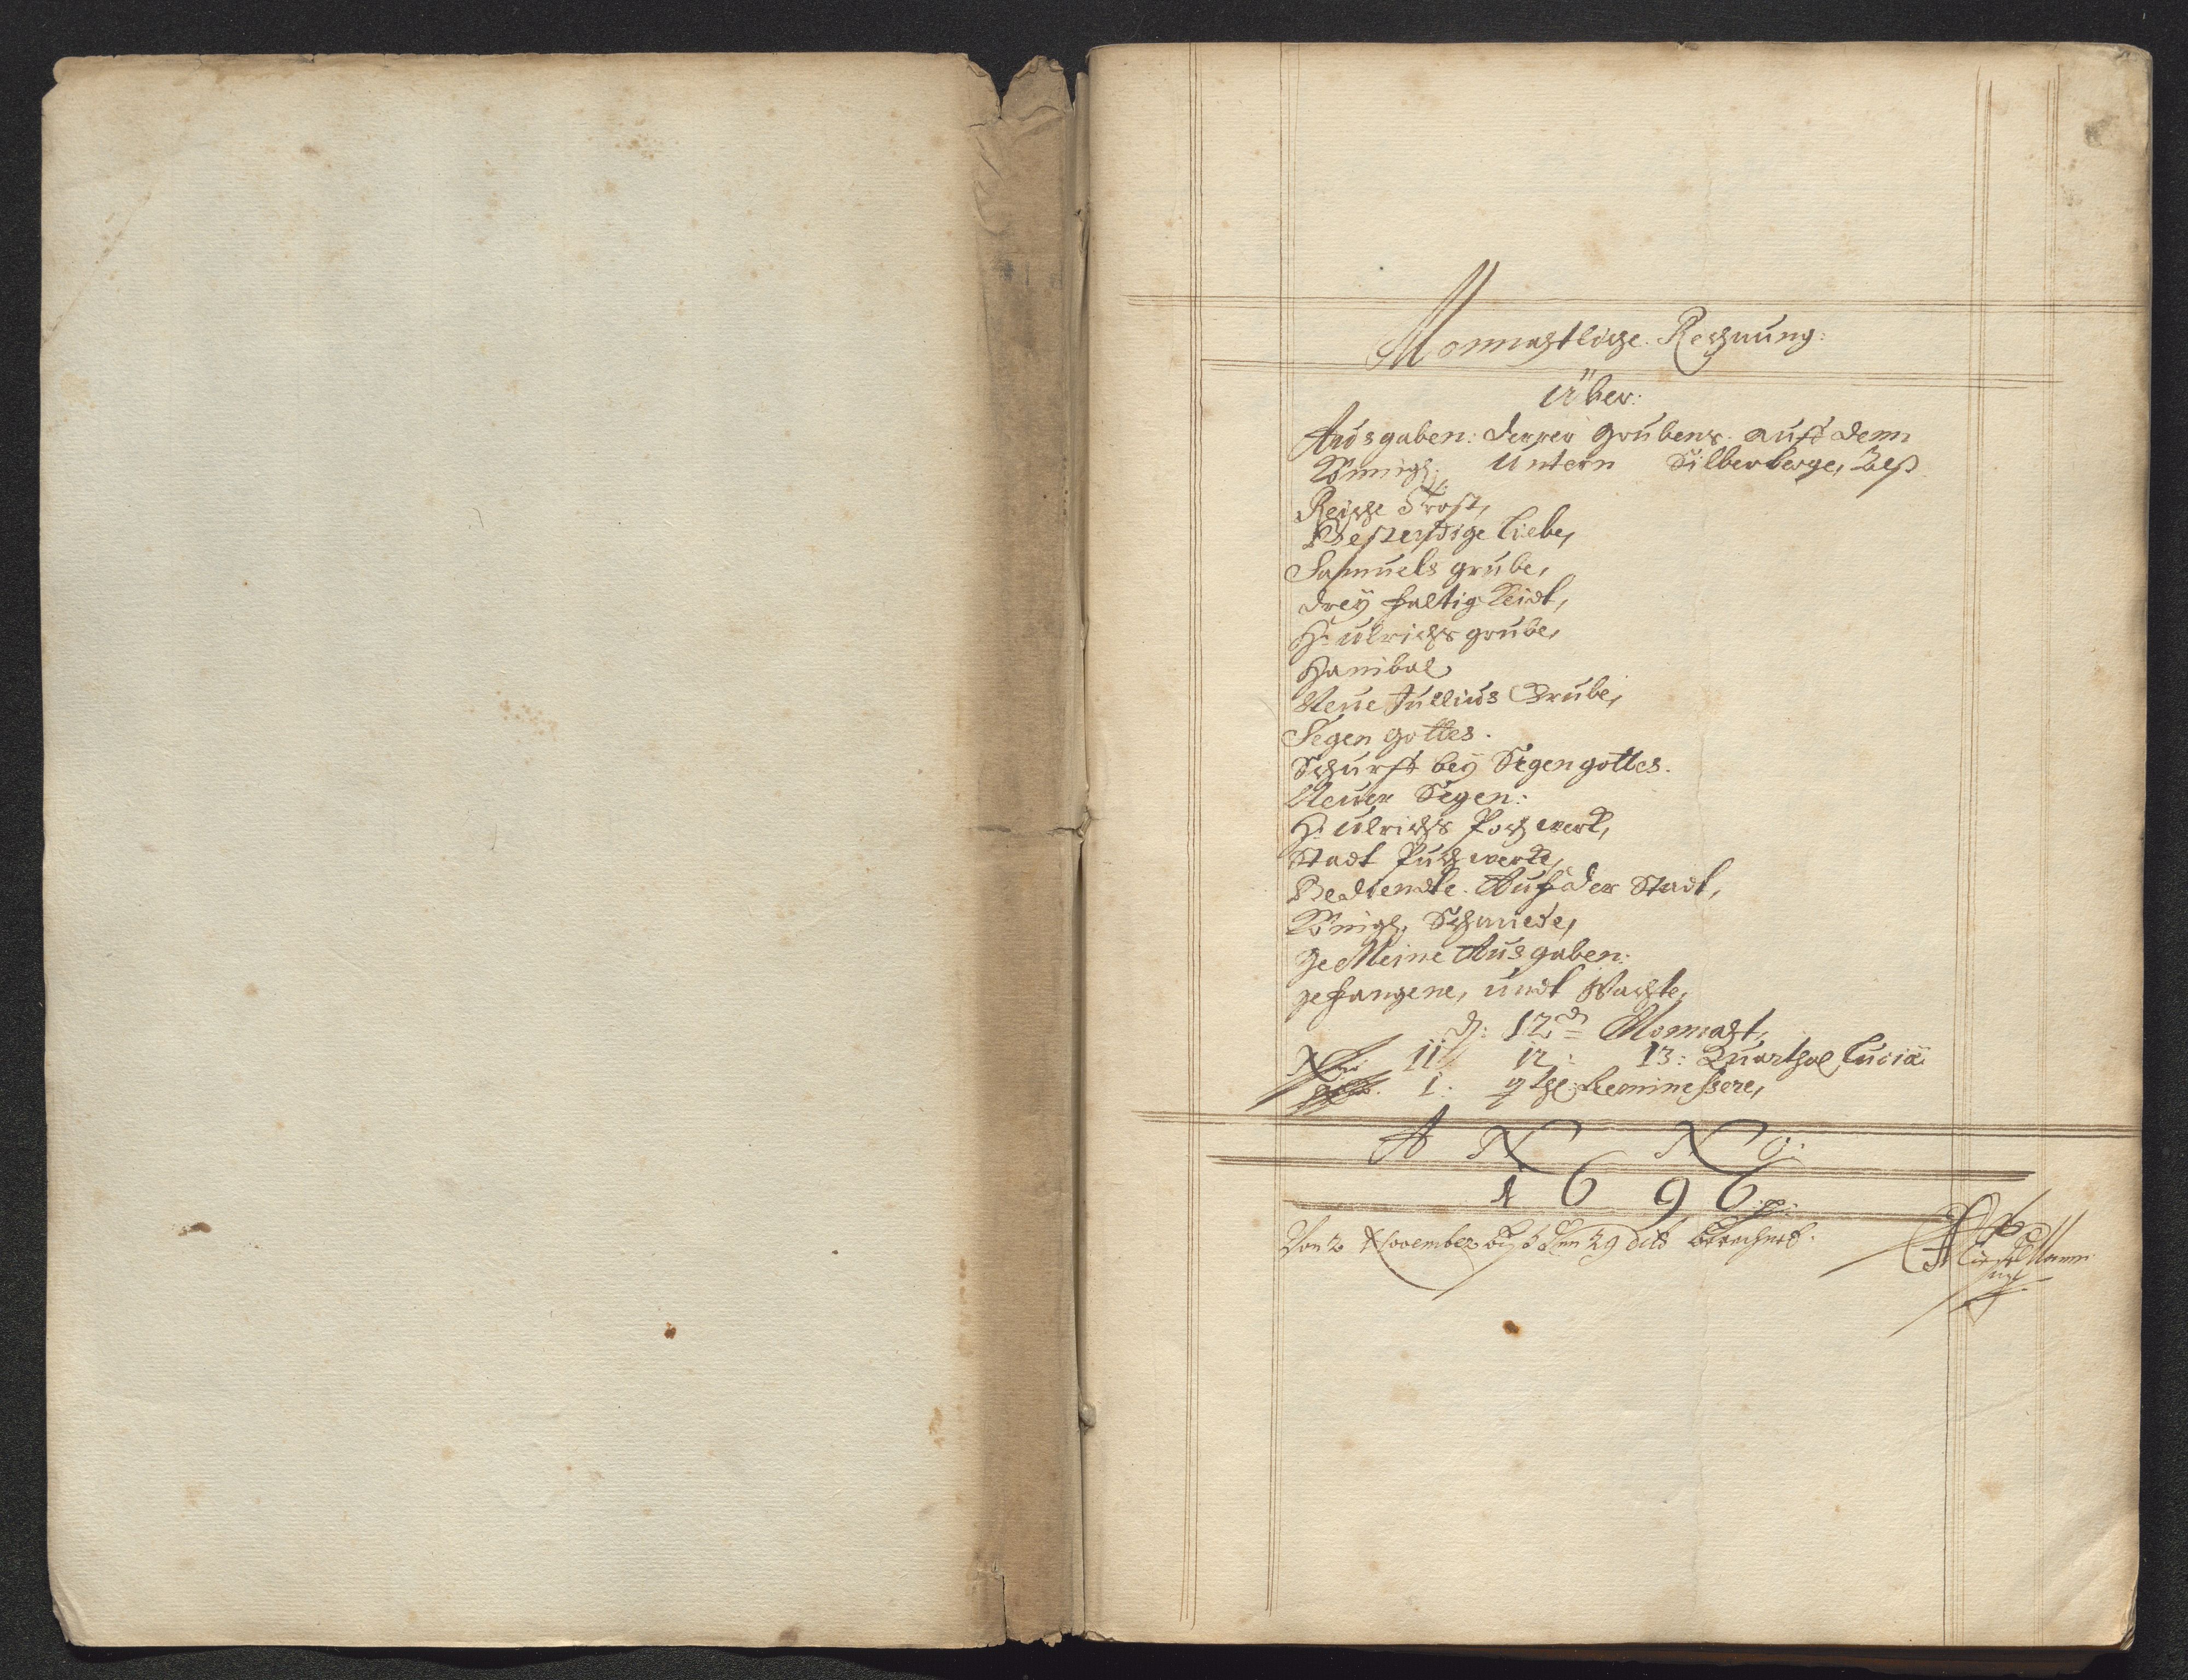 Monnahtliche Rechnung:
über:
Ausgaben: derrer Grubens. auff dem
Königl: Untern Silberberge, Alß
Reiche Trost,
Bestendige Liebe,
Samuels grube,
dreÿ faltig Keidt,
H: Ulrichs grube,
Hanibal
Neue Jullius Grube,
Segen gottes.
Schurff beÿ Segen gottes.
Neuer Segen:
H: Ulrichs Poch werk,
Stadt Puch werke,
Bediendte. Auf der Stadt,
Königl. Schmiede,
ge Meine Ausgaben:
gefangene, undt Wachte,
d: 12 Monnaht,
11 12: 13: Quarthal Luciä
1: qthl: Reminessere,
A N N O:
1 6 9 6 p:
Von 2 November biß den 29 dito berechnet.